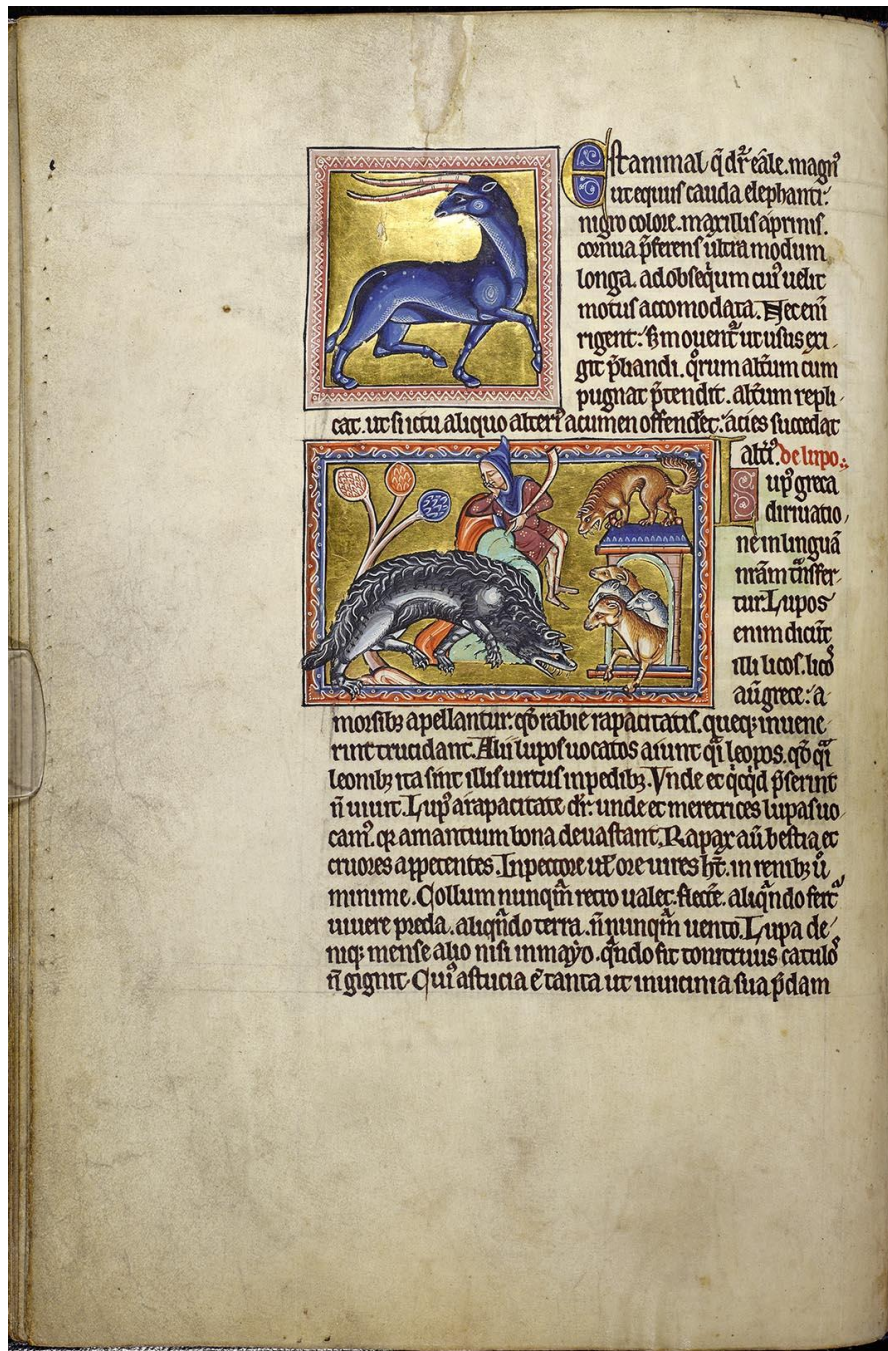 Est animal q̄ dr̄ eale. magn᷒
ut equus cauda elephanti.
nigro colore. maxillis aprinis.
cornua p̄ferens ultra modum
longa. ad obsequm cui᷒ uelit
motus accomodata. Nec eni͂
rigent. s͂ mouent᷑ ut usus exi
git p̄liandi. q̊rum alt͂um cum
pugnat p̄tendit. alt͂um repli
cat. ut si ictu aliquo alteri᷒ acumen offendet᷑. acies succedat
alt͂i᷒. de lupo.
Lup᷒ greca
diriuatio
ne in linguā
nr̄am t͂nsfer
tur. Lupos
enim dicūt
illi licos. lico᷒
aū grece. a
morsib; apellantur. qđ rabie rapacitatis. queq; inuene
rint trucidant. Alii lupos uocatos aiunt q̄i leopos. qđ q̄i
leonib; ita sint illis uirtus in pedib;. Vnde et q̇cq̇d p̄sserint
n̄ uiuit. Lup᷒ a rapacitate dr̄. unde et meretrices lupas uo
cam᷒. q̄r amantium bona deuastant. Rapax aū bestia et
cruores appetentes. In pectore uł ore uires ht̄. in renib; ů
minime. Collum nunq̄m retro ualet flecte᷑. aliq̄ndo fert᷑
uiuere preda. aliq̄ndo terra. n̄ nunq̄m uento. Lupa de
niq; mense alio nisi in mayo. q̄ndo fit tonitruus catulo᷒
n̄ gignit. Cui᷒ astucia ē tanta ut in uicinia sua p̄dam